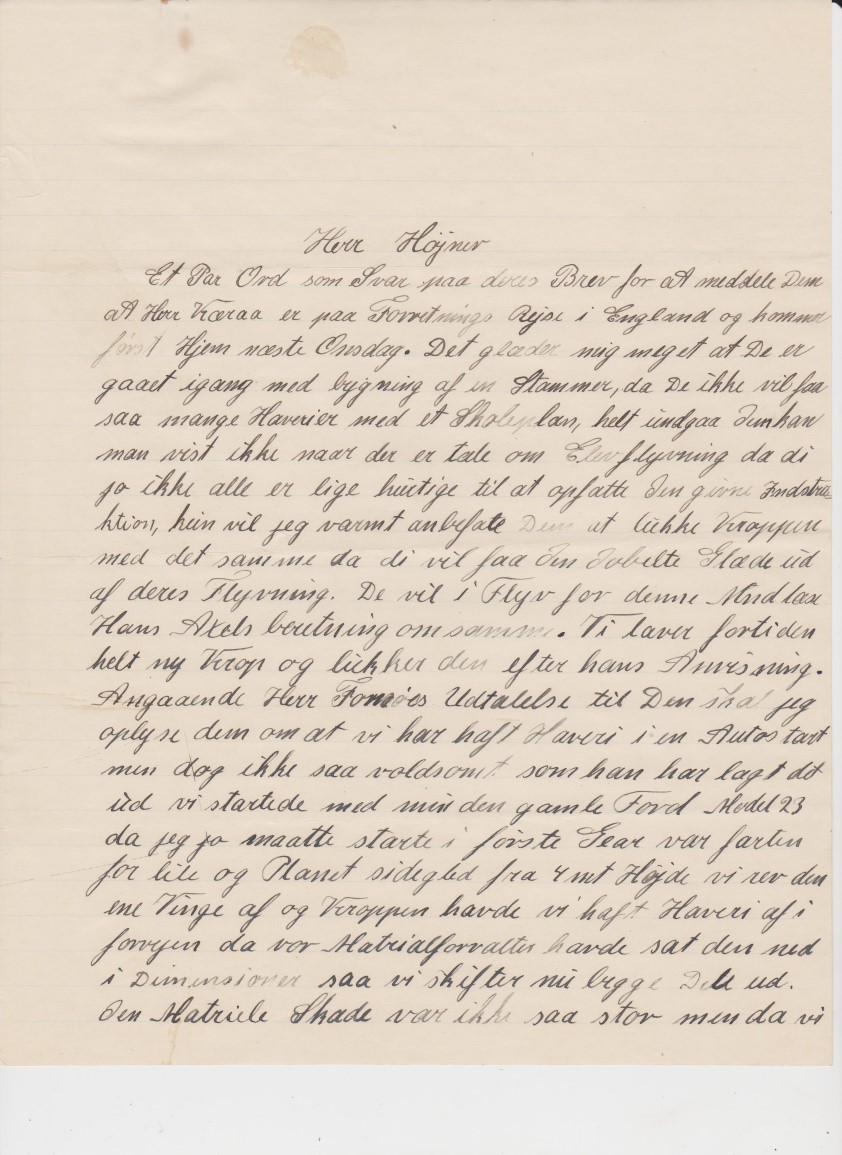 Herr Højner
Et Par Ord som Svar paa deres Brev for at meddele Dem
at Herr Kæraa er paa Forretnings Rejse i England og kommer
først Hjem næste Onsdag. Det glæder mig meget at De er
gaaet igang med bygning af en Stammer, da De ikke vil faa
saa mange Haverier med et Skoleplan, helt undgaa dem kan
man vist ikke naar der er tale om Elevflyvning da di
jo ikke alle er lige hurtige til at opfatte den givne Indstru=
ktion, kun vil jeg varmt anbefale Dem at lukke Kroppen
med det samme da di vil faa den dobelte Glæde ud
af deres Flyvning. De vil i Flyv for denne Mnd læse
Hans Axels beretning om samme. Vi laver for tiden
helt ny Krop og lukker den efter hans Anvisning.
Angaaende Herr Udtalelse til Dem skal jeg
oplyse dem om at vi har haft Haveri i en Autostart
men dog ikke saa voldsomt som han har lagt dt
ud vi startede med min den gamle Ford Model 23
da jeg jo maatte starte i første Gear var farten
for lile og Planet sidegled fra 4 mt Højde vi rev den
ene Vinge af og Kroppen havde vi haft Haveri af i
forvejen da vor Matrialforvalter havde sat den ned
i Dimensioner saa vi skifter nu begge Dele ud.
den Matriele Skade var ikke saa stor men da vi